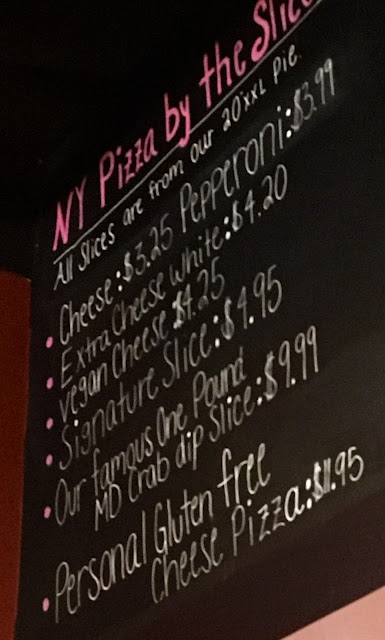 NY Pizza by the Slice
All Slices are from our 20"xxL Pie.
• Cheese:$3.25 Pepperoni:$3.99
• Extra Cheese White:$4.20
• Vegan Cheese $4.25
• Signature Slice:$4.95
• Our famous One Pound
MD Crab dip Slice:$9.99
• Personal Gluten free
Cheese Pizza:$11.95